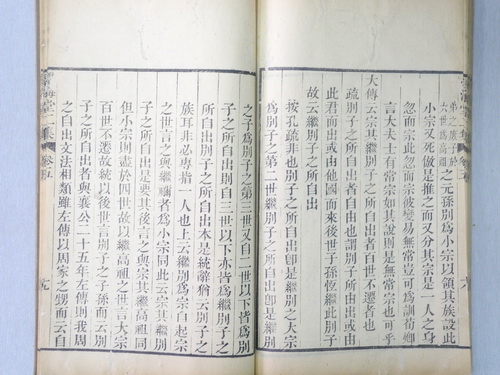 弟之庶於
六世爲高祖
之元孫別爲小宗以領其族設此
小宗又死倣是推之而又分其宗是一人之身
忽而宗此忽而宗彼變易無常豈可爲訓荀卿
言大夫士有常宗如其說則是無常宗也可乎
大傳云宗其繼別子之所自出者百世不遷者也
疏別子之所自出者自由也謂別子所由出或由
此君而出或由他國而來後世子孫恆繼此別子
故云繼別子之所自出
按孔疏非也所云繼別子之所自出卽是繼別之大宗
爲別子之第二世繼別子之所自出卽是繼別
之子爲別子之第三世又自二世以下皆爲別
子之所自出則自三世以下亦皆爲繼別子之
所自出繼別子之所自出本是統辭猶云別子之
族耳非必專指一人也上云繼別爲宗自起宗
之世言之與繼禰者爲小宗同此云宗其繼別
子之所自出是更其後言之與宗其繼高祖同
但小宗則盡於四世故以繼高祖之世言大宗
百世不遷故統後世言別子之子孫而云別
子之所自出者與襄公二十五年左傳則我周
之自出文法相類雖左傳以周家之甥而云自
卷五
十九